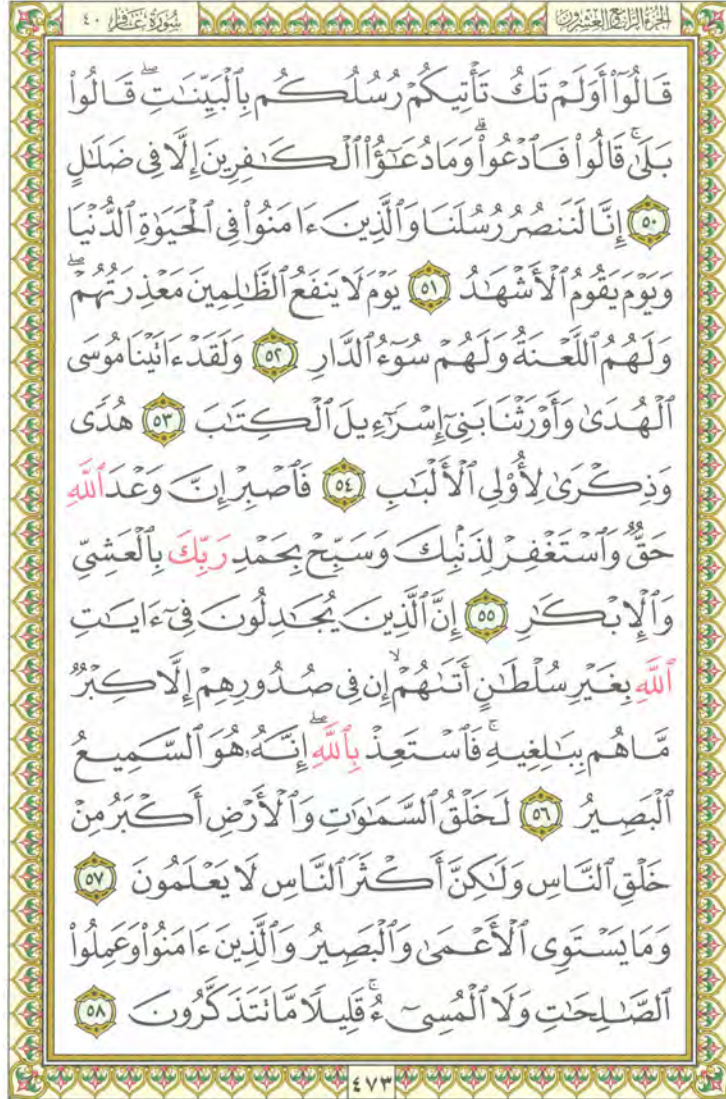 سُورَةُ غَافِرٍ ٤٠
الجُزْءُ الرَّابِعُ وَالعِشْرُونَ
قَالُوٓا۟ أَوَلَمْ تَكُ تَأْتِيكُمْ رُسُلُكُم بِٱلْبَيِّنَٰتِ ۖ قَالُوا۟
بَلَىٰ ۚ قَالُوا۟ فَٱدْعُوا۟ ۗ وَمَا دُعَٰٓؤُا۟ ٱلْكَٰفِرِينَ إِلَّا فِى ضَلَٰلٍ
٥٠ إِنَّا لَنَنصُرُ رُسُلَنَا وَٱلَّذِينَ ءَامَنُوا۟ فِى ٱلْحَيَوٰةِ ٱلدُّنْيَا
وَيَوْمَ يَقُومُ ٱلْأَشْهَٰدُ ٥١ يَوْمَ لَا يَنفَعُ ٱلظَّٰلِمِينَ مَعْذِرَتُهُمْ ۖ
وَلَهُمُ ٱللَّعْنَةُ وَلَهُمْ سُوٓءُ ٱلدَّارِ ٥٢ وَلَقَدْ ءَاتَيْنَا مُوسَى
ٱلْهُدَىٰ وَأَوْرَثْنَا بَنِىٓ إِسْرَٰٓءِيلَ ٱلْكِتَٰبَ ٥٣ هُدًى
وَذِكْرَىٰ لِأُو۟لِى ٱلْأَلْبَٰبِ ٥٤ فَٱصْبِرْ إِنَّ وَعْدَ ٱللَّهِ
حَقٌّ وَٱسْتَغْفِرْ لِذَنۢبِكَ وَسَبِّحْ بِحَمْدِ رَبِّكَ بِٱلْعَشِىِّ
وَٱلْإِبْكَٰرِ ٥٥ إِنَّ ٱلَّذِينَ يُجَٰدِلُونَ فِىٓ ءَايَٰتِ
ٱللَّهِ بِغَيْرِ سُلْطَٰنٍ أَتَىٰهُمْ ۙ إِن فِى صُدُورِهِمْ إِلَّا كِبْرٌ
مَّا هُم بِبَٰلِغِيهِ ۚ فَٱسْتَعِذْ بِٱللَّهِ ۖ إِنَّهُۥ هُوَ ٱلسَّمِيعُ
ٱلْبَصِيرُ ٥٦ لَخَلْقُ ٱلسَّمَٰوَٰتِ وَٱلْأَرْضِ أَكْبَرُ مِنْ
خَلْقِ ٱلنَّاسِ وَلَٰكِنَّ أَكْثَرَ ٱلنَّاسِ لَا يَعْلَمُونَ ٥٧
وَمَا يَسْتَوِى ٱلْأَعْمَىٰ وَٱلْبَصِيرُ وَٱلَّذِينَ ءَامَنُوا۟ وَعَمِلُوا۟
ٱلصَّٰلِحَٰتِ وَلَا ٱلْمُسِىٓءُ ۚ قَلِيلًا مَّا تَتَذَكَّرُونَ ٥٨
٤٧٣